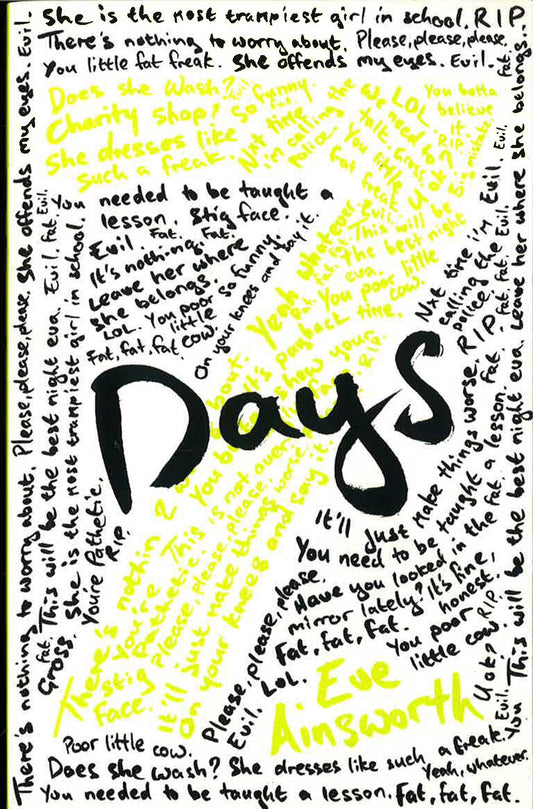 She is the most trampiest girl in school. R.I.P.
There's nothing to worry about. Please, please, please.
You little fat freak. She offends my eyes. Evil.
Does she wash?
Charity shop?
She dresses like
such a freak.
So funny.
Fat.
Nxt time
i'm calling the
police.
We need to
talk. Gna
LOL.
U ok?
You gotta
believe
it.
R.I.P.
You little
fat freak
Evil
This will be
the best night
eva.
You poor little
cow.
Yeah whatever.
It's payback time.
You needed to be taught a
lesson. Stig face.
Evil. Fat. Fat.
It's nothing.
Leave her where
she belongs.
LOL. You poor
little
cow.
Fat, fat, fat
So funny.
On your knees and say it.
Nxt time i'm
calling the
police.
Evil.
Evil.
fat. fat.
R.I.P.
7
Days
There's nothin 2
You're
Pathetic.
Stig
Face.
This is not over.
Please, please, please.
It'll just make things worse.
On your knees and say it
show your
R.I.P.
You're Pathetic.
R.I.P.
It'll just make things worse.
You need to be taught a lesson.
Have you looked in the
mirror lately? It's fine,
honest.
Fat, fat, fat.
You poor
little cow.
R.I.P.
U ok?
Evil.
Please, please, please.
Evil. LOL.
Eve
Ainsworth
Poor little cow.
Does she wash? She dresses like such a freak.
Yeah, whatever.
You needed to be taught a lesson. Fat, fat, fat.
There's nothing to worry about. Please, please, please. She offends my eyes. Evil.
Fat. This will be the best night eva. Evil. fat. Evil.
Gross. She is the most trampiest girl in school.
You This will be the best night eva. Leave her where she belongs.